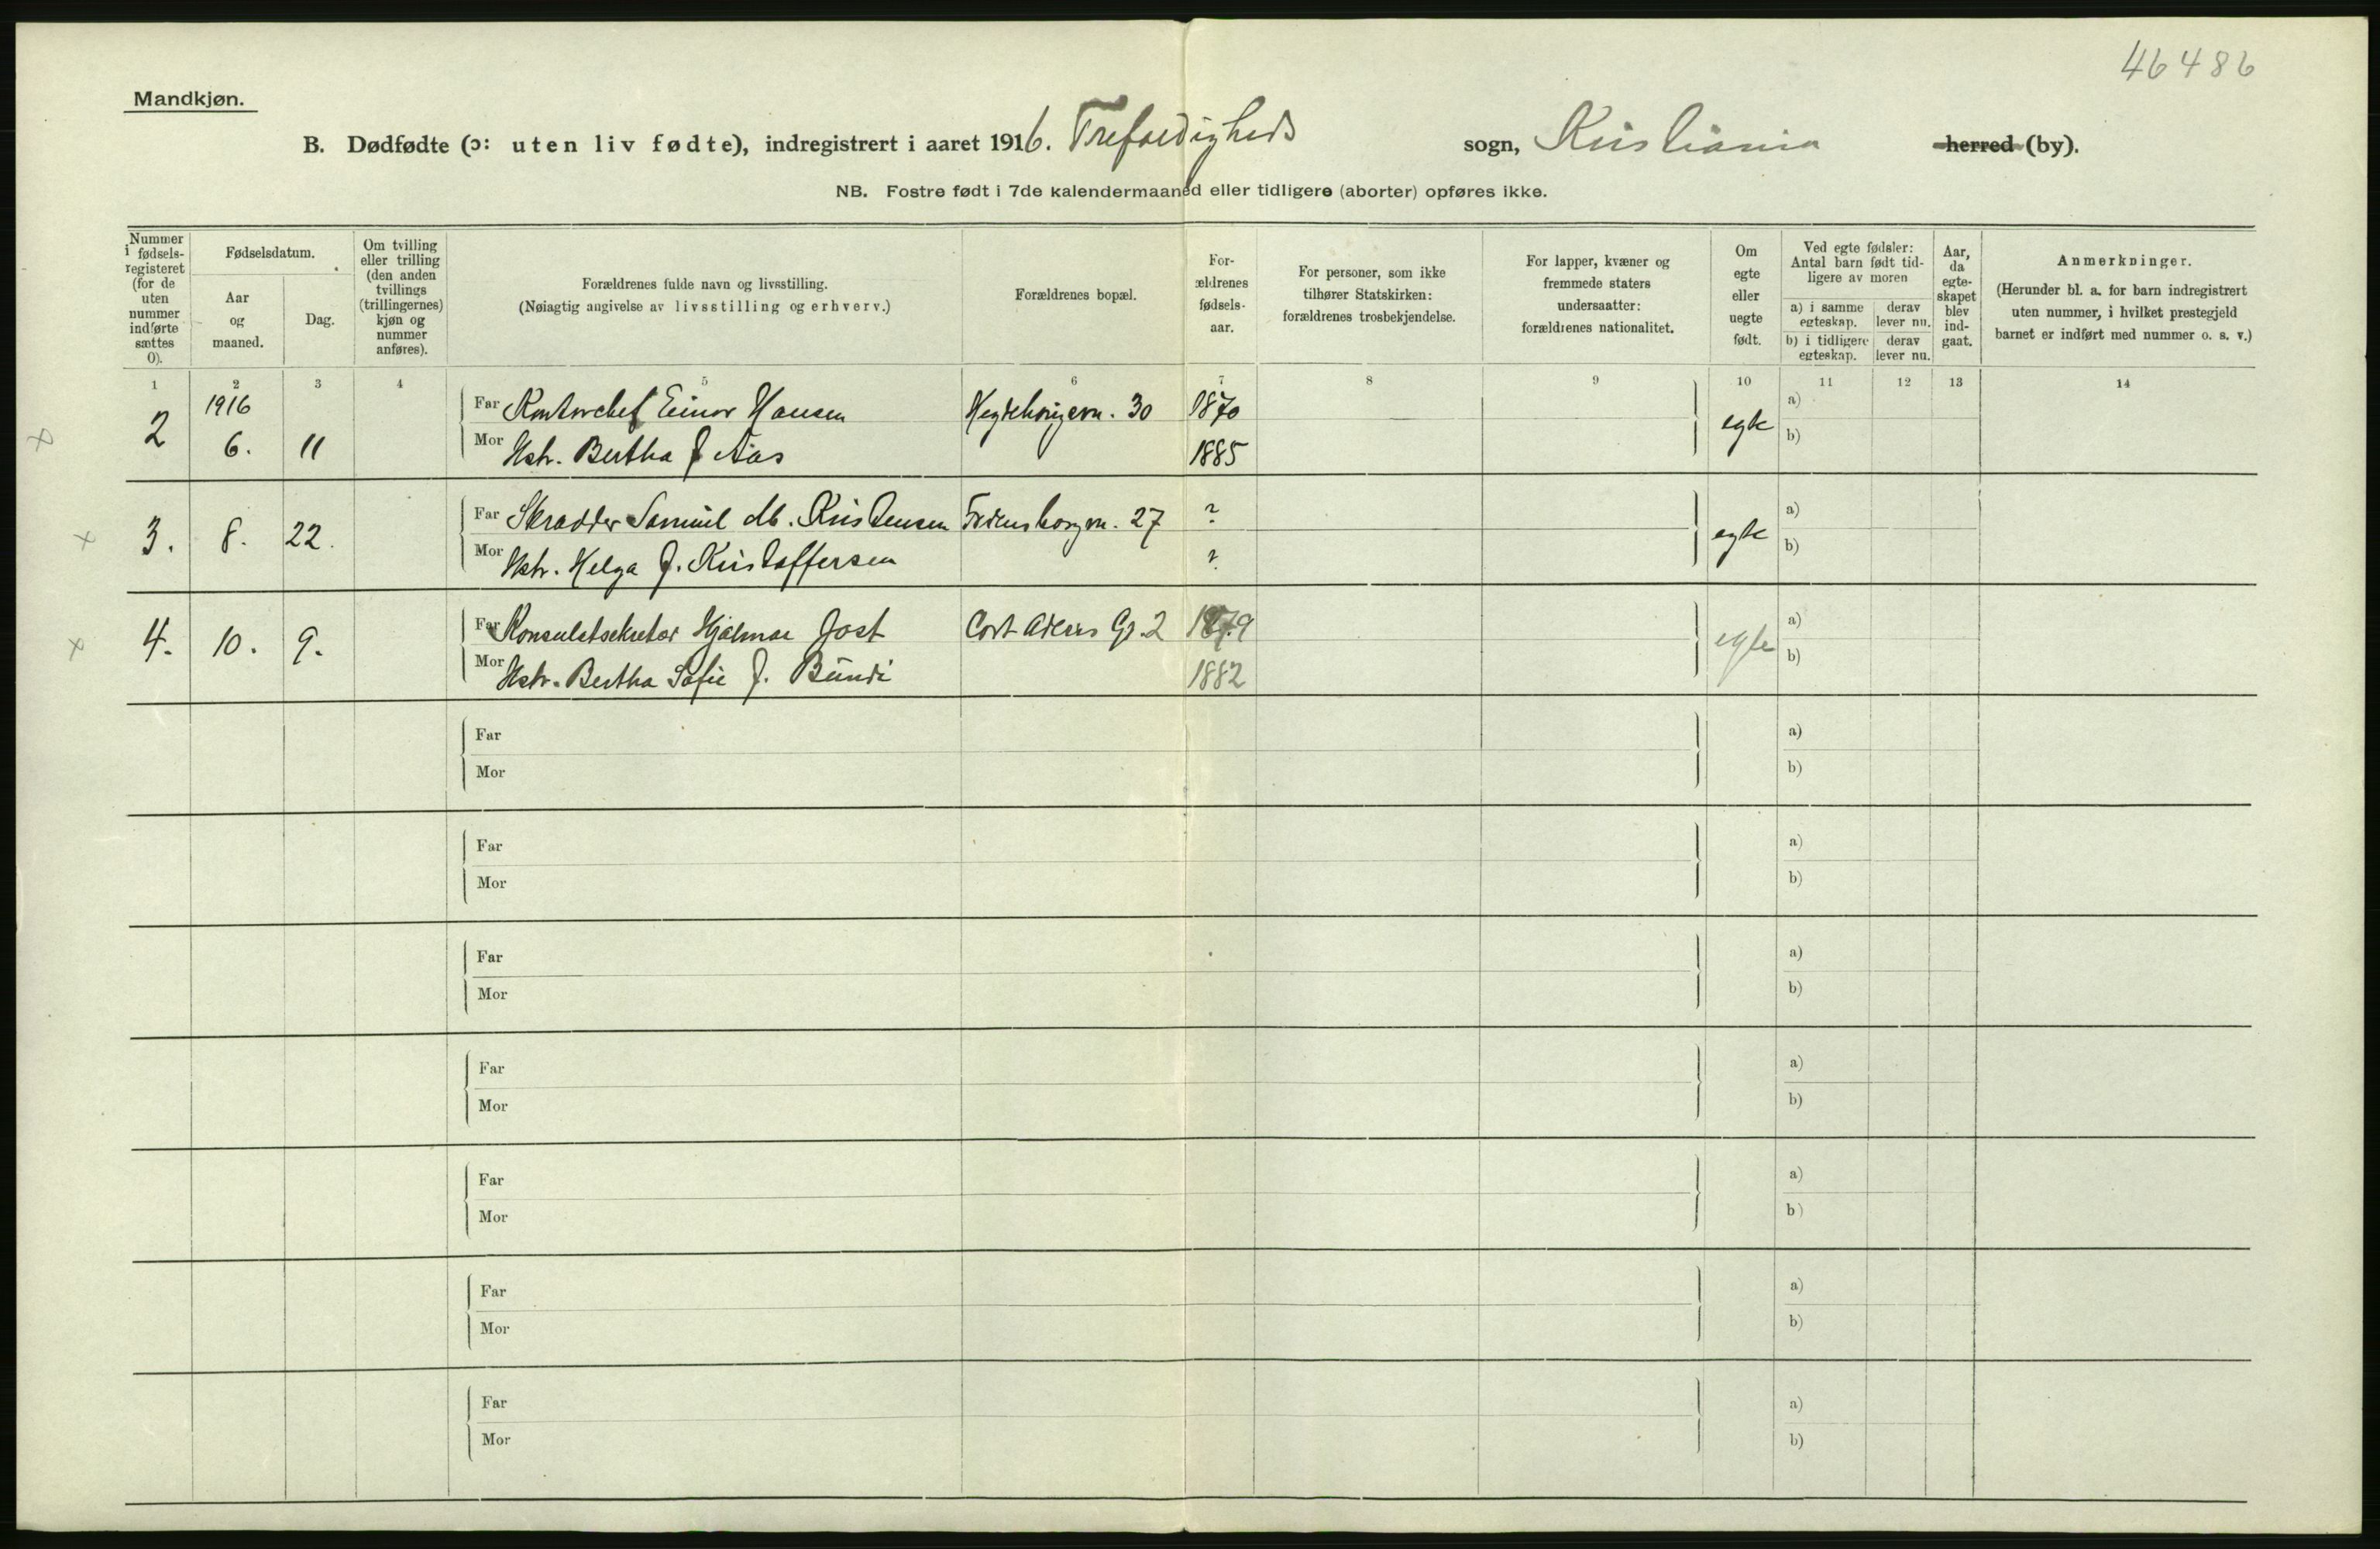 46486
Mandkjøn.
B. Dødfødte (ɔ: uten liv fødte), indregistrert i aaret 1916. Trefoldigheds sogn, Kristiania herred (by).
NB. Fostre født i 7de kalendermaaned eller tidligere (aborter) opføres ikke.
Nummer i fødsels-registeret (for de uten nummer indførte sættes 0).
Fødselsdatum.
Aar og maaned.
Dag.
Om tvilling eller trilling (den anden tvillings (trillingernes) kjøn og nummer anføres).
Forældrenes fulde navn og livsstilling.
(Nøiagtig angivelse av livsstilling og erhverv.)
Forældrenes bopæl.
For-ældrenes fødsels-aar.
For personer, som ikke tilhører Statskirken: forældrenes trosbekjendelse.
For lapper, kvæner og fremmede staters undersaatter: forældrenes nationalitet.
Om egte eller uegte født.
Ved egte fødsler: Antal barn født tid-ligere av moren
a) i samme egteskap.
derav lever nu.
b) i tidligere egteskap.
derav lever nu.
Aar, da egte-skapet blev ind-gaat.
Anmerkninger.
(Herunder bl. a. for barn indregistrert uten nummer, i hvilket prestegjeld barnet er indført med nummer o. s. v.)
1 2 3 4 5 6 7 8 9 10 11 12 13 14
1916
× 2 6. 11 Far Kontorchef Einar Hansen Hegdehaugsvn. 30 1870 egte a)
Mor Hstr. Bertha f Aas 1885 b)
× 3. 8. 22. Far Skrædder Samuel M. Kristensen Fredensborgvn. 27 ? egte a)
Mor Hstr. Helga f. Kristoffersen ? b)
× 4. 10. 9. Far Konsulatsekretær Hjalmar Jost Cort Adelers Gt. 2 1879 egte a)
Mor Hstr. Bertha Sofie f. Bündi 1882 b)
Far a)
Mor b)
Far a)
Mor b)
Far a)
Mor b)
Far a)
Mor b)
Far a)
Mor b)
Far a)
Mor b)
Far a)
Mor b)